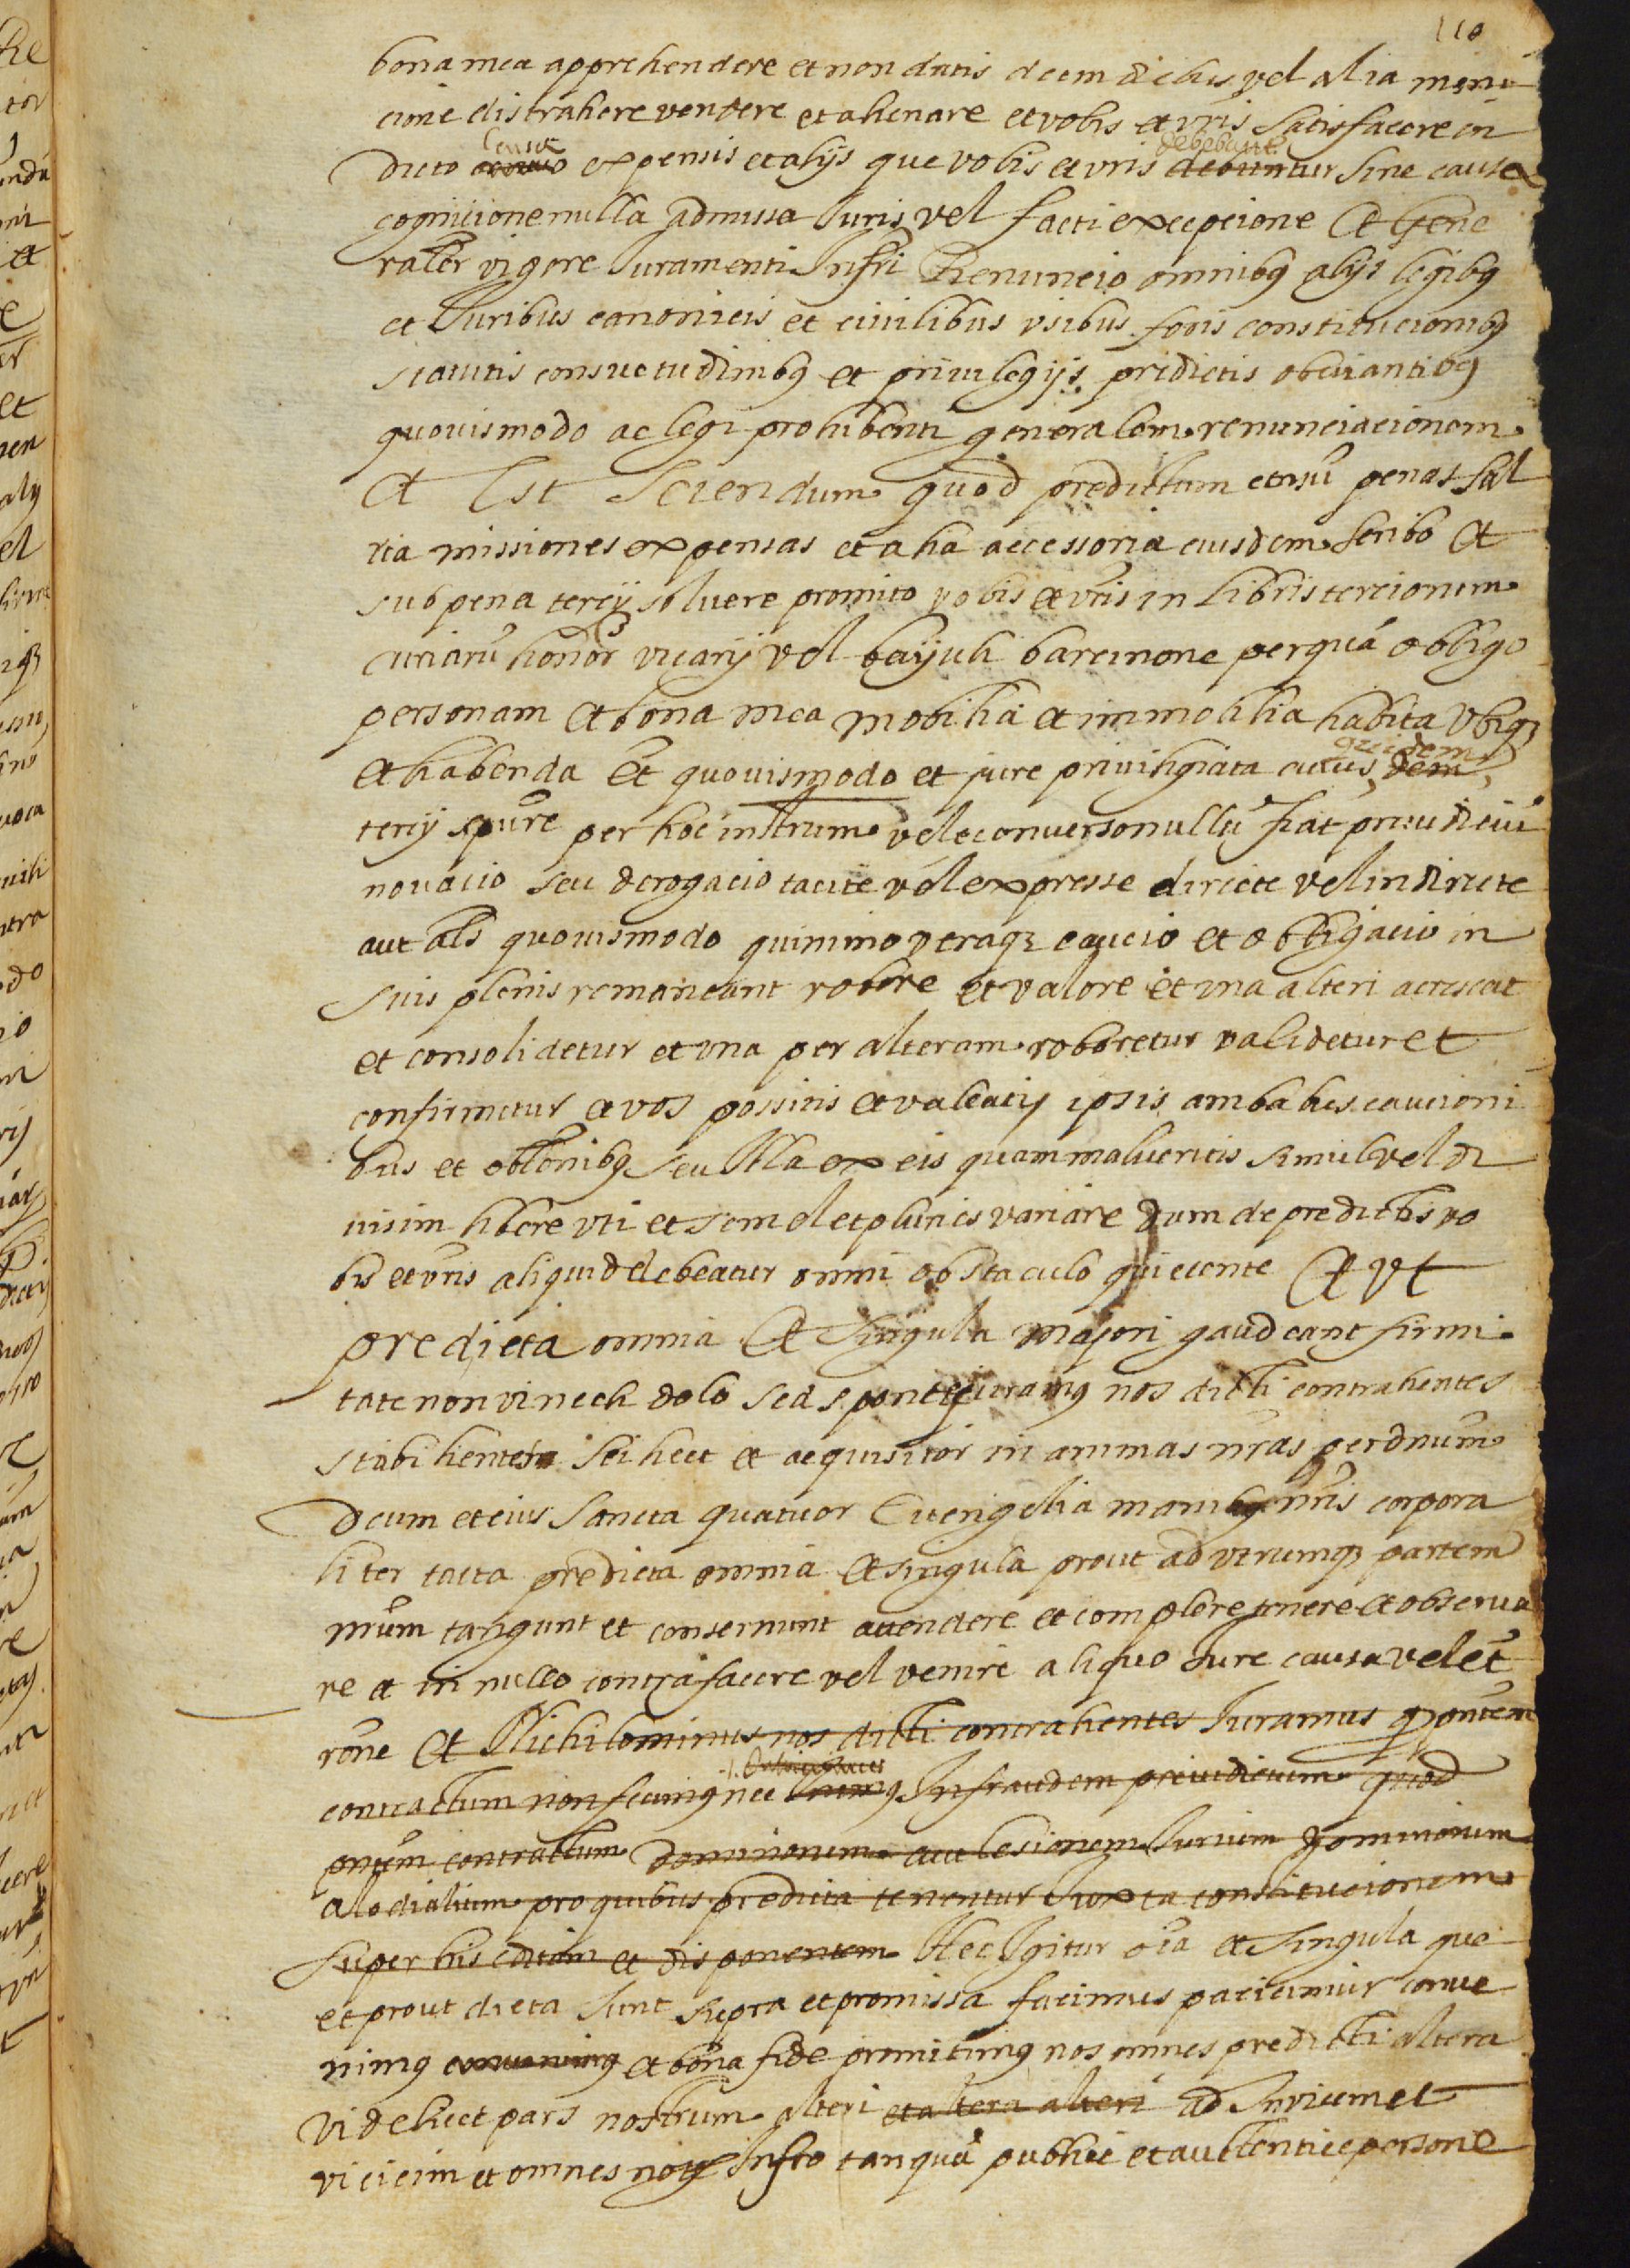 110
bona mea apprehendere et non datis decem diebus vel alia moni
cione distrahere vendere et alienare et vobis et vris satisfacere in
censu debebunt
dicto expensis et alijs que vobis et vris debuntur sine cause
cognicione nulla admissa Iuris vel facti excepcione Et Gene
ralr vigore Iuramenti Infri Renuncio omnibq alijs legibq
et Iuribus canonicis et ciuilibus vsibus foris constitucionibq
statutis consuetudinibq et priuilegijs predictis obuiantibq
quouismodo ac legi prohibenti generalem renunciacionem
Et Est Sciendum quod predictum censu penas sal
ria missiones expensas et alia accessoria eiusdem scribo Et
sub pena tercij soluere promito vobis et vris in libris tercionum
curiaru honor vicarij vel bajuli barcinone per qua obligo
personam et bona mea mobilia et immobilia habita vbiq
quidem
et habenda Et quouismodo et jure priuiligiata cuius dem
tercij spure per hoc instrum vel e conuerso nullu fiat preiudiciu
nouacio seu derogacio tacite vel expresse directe vel indirecte
aut als quouismodo quinimo vtraq caucio et obligacio in
suis plenis remaneant robore et valore et vna alteri acrescat
et consolidetur et vna per alteram roboretur validetur et
confirmetur et vos possitis et valeatis ipsis ambabus caucioni
bus et oblonibq seu illa ex eis quam malueritis simul vel di
uisim libere vti et semel et pluries variare dum de predictis vo
bis et vris aliquid debeatur omni obstaculo quiecente Et vt
predicta omnia Et singula majori gaudeant firmi
tate non vi nec dolo sed sponte juramq nos dicti contrahentes
stabilientes scilicet et acquisitor in animas nras per dnum
Deum et eius sancta quatuor Euangelia manibq nris corpora
liter tacta predicta omnia et singula prout ad vtrumq partem
nrum tangunt et consernunt attendere et complere tenere et obserua
re et in nullo contrafacere vel venire aliquo Iure causa vel et
rone Et Nichilominus nos dicti contrahentes Iuramus q pntem
contractum non fecimq nec Inimq In fraudem preiudicium quod
pntem contractum dominorum aut lesionem Iurium dominorum
alodialium pro quibus predicta tenentur Iuxta constitucionem
super his editam et disponentem Hec Igitur oia et singula que
et prout dicta sunt supra et promissa facimus paciscimur conue
nimq conuenimq et bona fide promitimq nos omnes predicti altera
videlicet pars nostrum alteri et altera alteri ad Inuicem et
vicicim et omnes noty Infro tanqua publice et auctentice persone